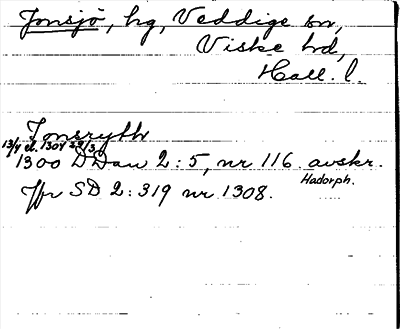 Jonsjö, hg, Veddige sn,
Viske hd,
Hall. l.
Jonsryth
13/4 el. 1304 29/3
1300 DDan 2:5, nr 116. avskr.
Hadorph.
Jfr SD 2:319 nr 1308.